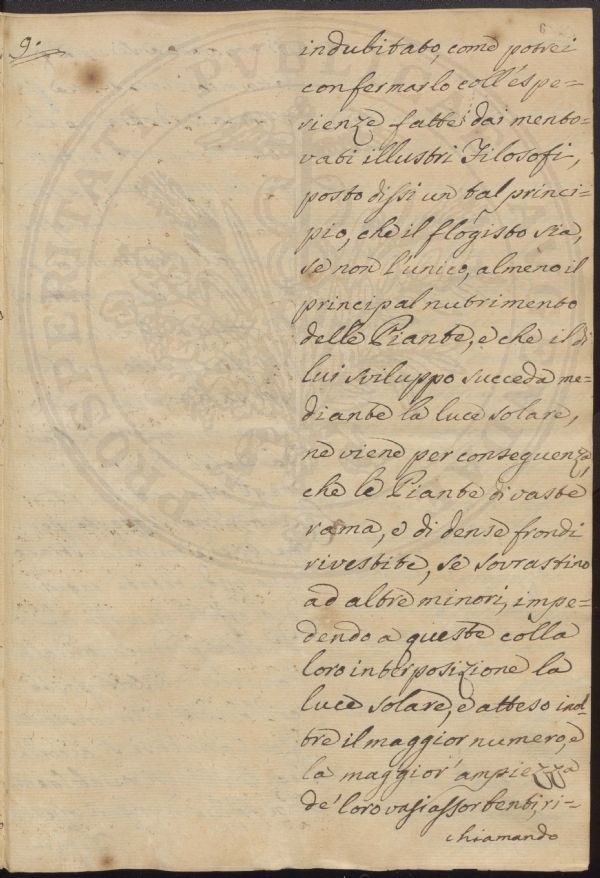 9.
6
indubitato, come potrei
confermarlo coll'espe=
rienze fatte dai mento=
vati illustri Filosofi,
posto dissi un tal princi=
pio, che il flogisto sia,
se non l'unico, almeno il
principal nutrimento
delle Piante, e che il di
lui sviluppo succeda me=
diante la luce solare,
ne viene per conseguenza,
che le Piante di vaste
rama, e di dense frondi
rivestite, se sovrastino
ad altre minori, impe=
dendo a queste colla
loro interposizione la
luce solare, e atteso inol=
tre il maggior numero, e
la maggior' ampiezza
de' loro vasi assorbenti, ri=
chiamando